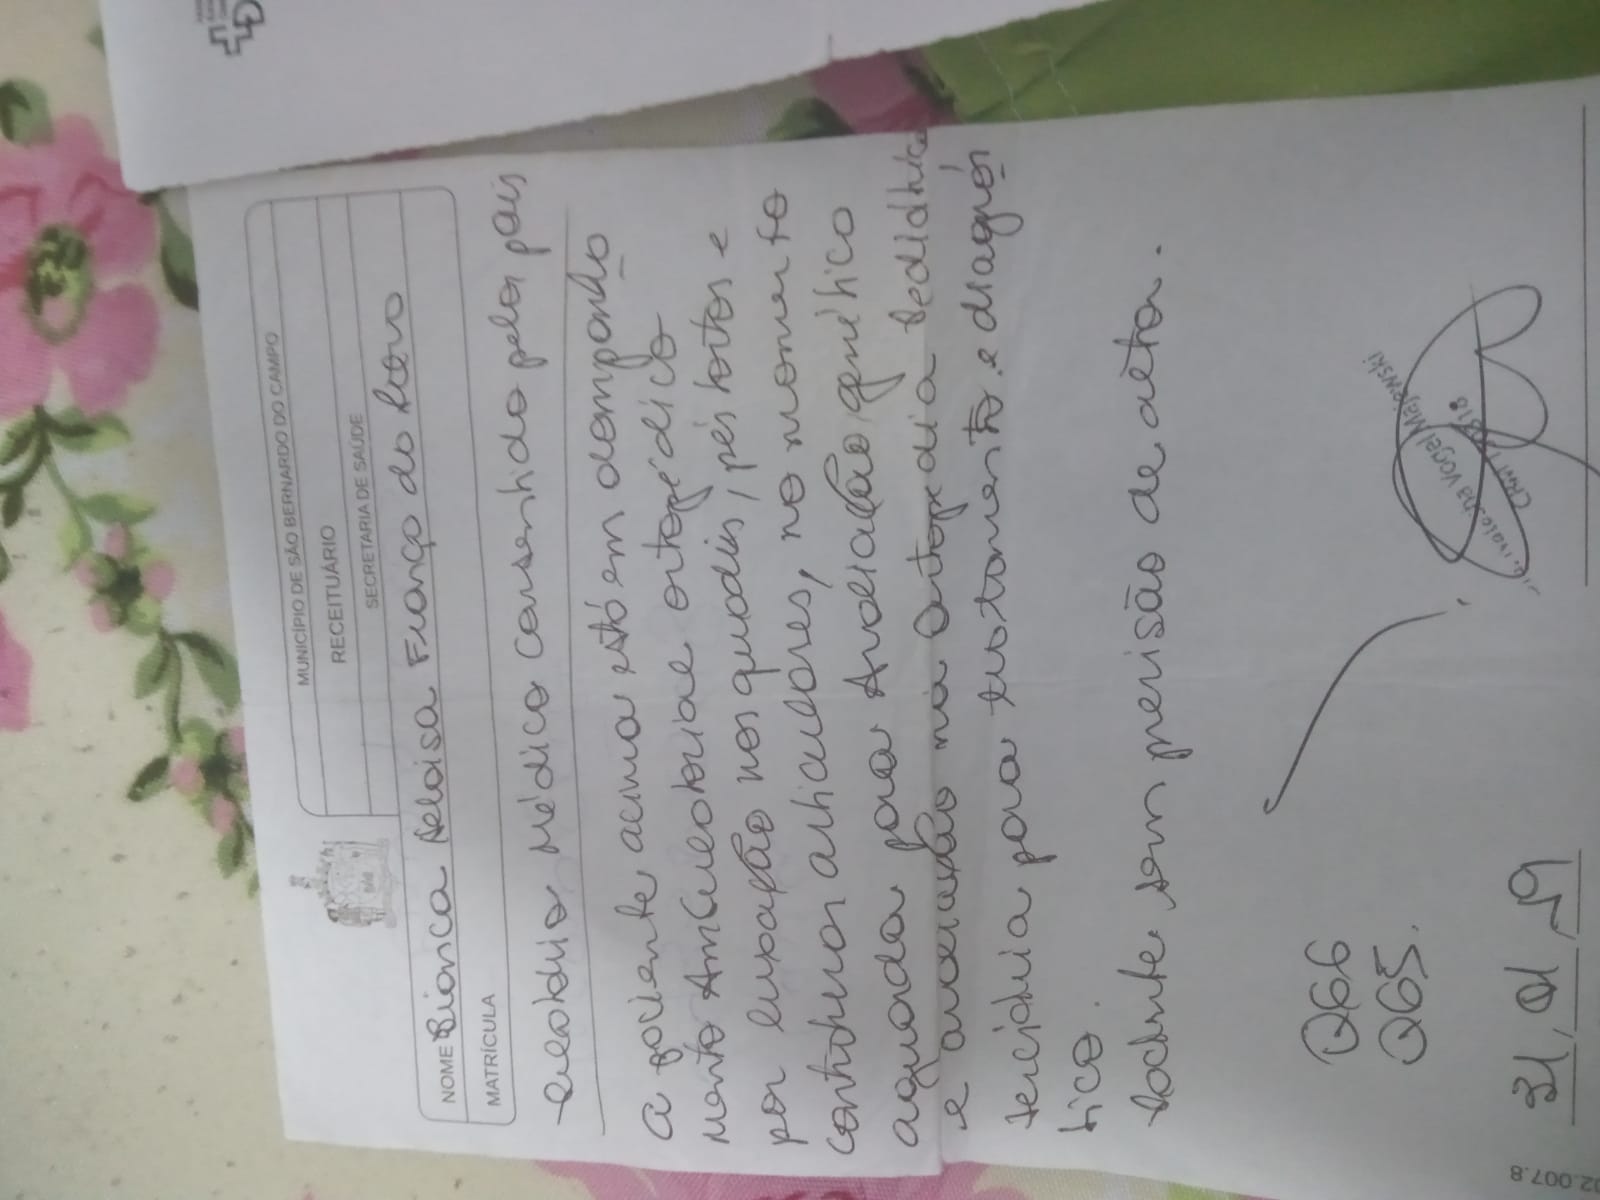 MUNICÍPIO DE SÃO BERNARDO DO CAMPO
RECEITUÁRIO
SECRETARIA DE SAÚDE
NOME Bianca Heloisa França do
MATRÍCULA
Relatório Médico consentido pelos pais
A paciente acima está em acompanha
mento Ambulatorial ortopédico
por luxação nos quadris, pés tortos e
contraturas articulares, no momento
aguarda para Avaliação genético
e avaliação na ortopedia pediátrica
terciária para tratamento e diagnós
tico.
Paciente sem previsão de alta.
Q66
Q65.
31, 01, 19
Vogel Majewski
CRM
02.007.8